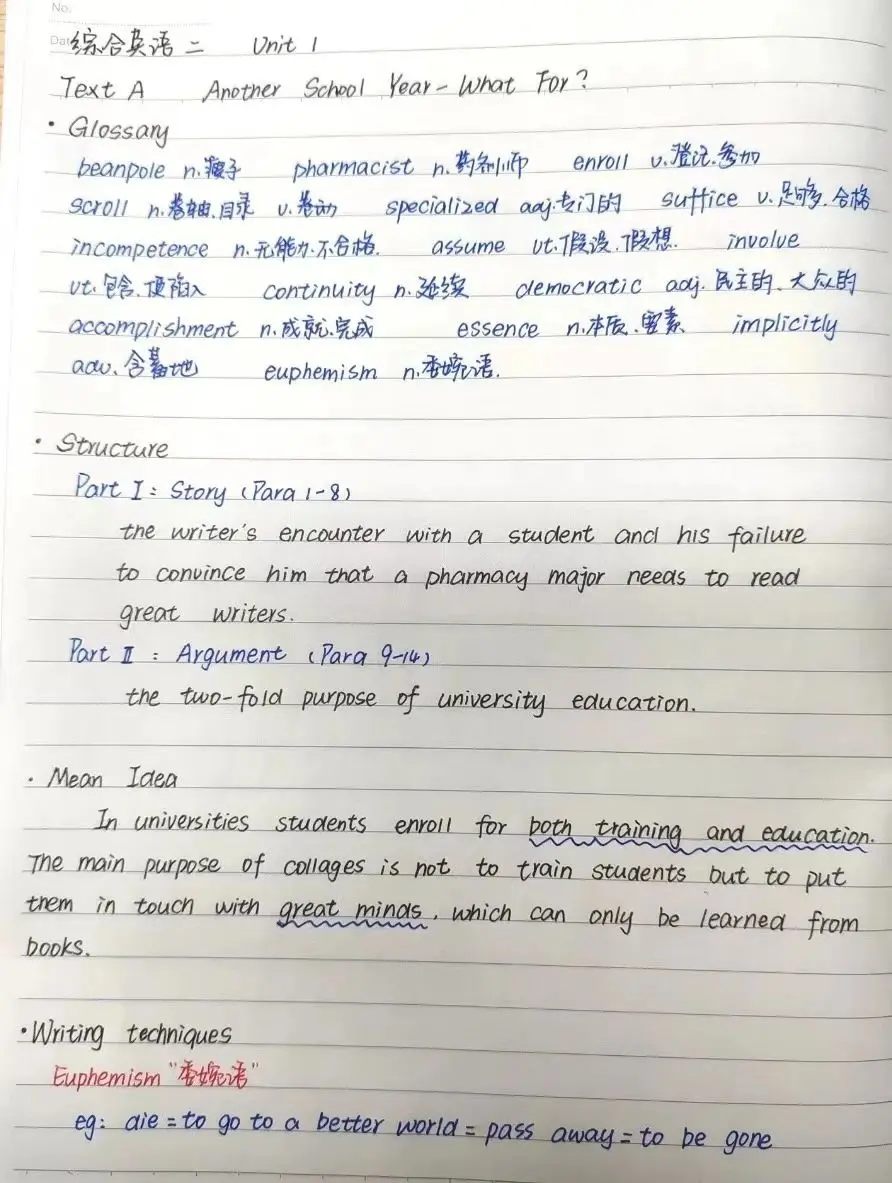 No.
Dat
综合英语二 Unit 1
Text A Another School Year - What For?
· Glossary
beanpole n.瘦子 pharmacist n.药剂师 enroll v.登记.参加
scroll n.卷轴.目录 v.卷动 specialized adj.专门的 suffice v.足够.合格
incompetence n.无能力.不合格. assume vt.假设.假想. involve
vt.包含.使陷入 continuity n.延续 democratic adj.民主的.大众的
accomplishment n.成就.完成 essence n.本质.要素 implicitly
adv.含蓄地 euphemism n.委婉语.
· Structure
Part I: Story (Para 1-8)
the writer's encounter with a student and his failure
to convince him that a pharmacy major needs to read
great writers.
Part II: Argument (Para 9-14)
the two-fold purpose of university education.
· Mean Idea
In universities students enroll for both training and education.
The main purpose of collages is not to train students but to put
them in touch with great minds, which can only be learned from
books.
· Writing techniques
Euphemism "委婉语"
eg: die = to go to a better world = pass away = to be gone